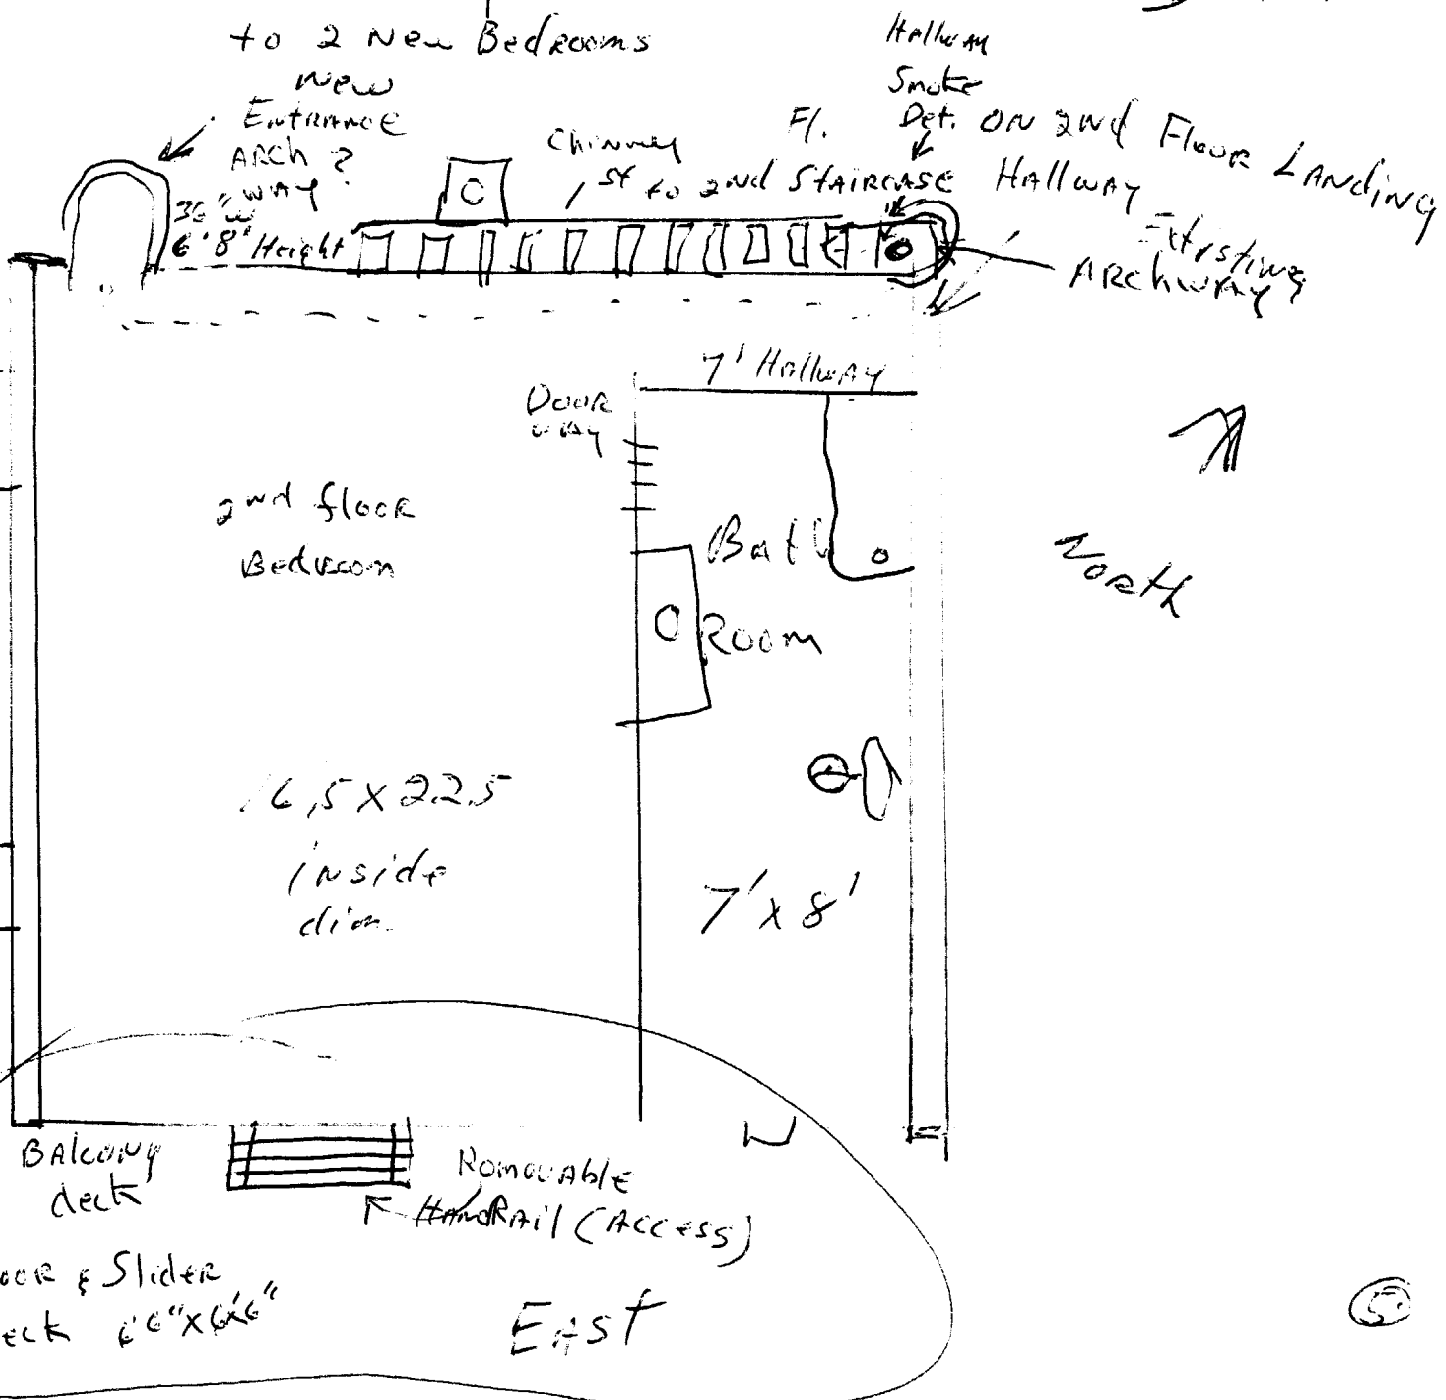 to 2 New Bedrooms
New
Entrance
Arch ?
way
36"W
6'8" Height
Chimney
Fl.
1st to 2nd Staircase
Hallway
Smoke
Det. ON 2nd Floor Landing
Hallway
Existing
Archway
7' Hallway
Door
way
2nd floor
Bedroom
Bath
Room
North
16,5 x 22.5
inside
dim.
7' x 8'
W
Balcony
deck
Romovable
HandRail (Access)
& Slider
East
5